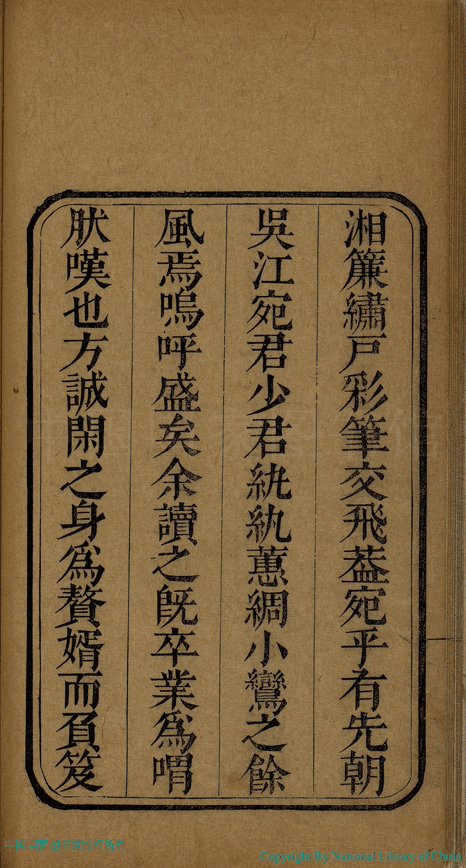 湘簾繡戸彩筆交飛葢宛乎有先朝
吳江宛君少君紈紈蕙綢小鸞之餘
風焉嗚呼盛矣余讀之旣卒業爲喟
肰嘆也方誠閑之身爲贅婿而負笈
Copyright By National Library of China